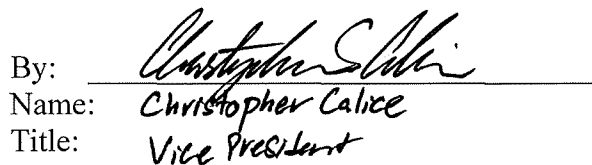 By: Christopher S Calice
Name: Christopher Calice
Title: Vice President